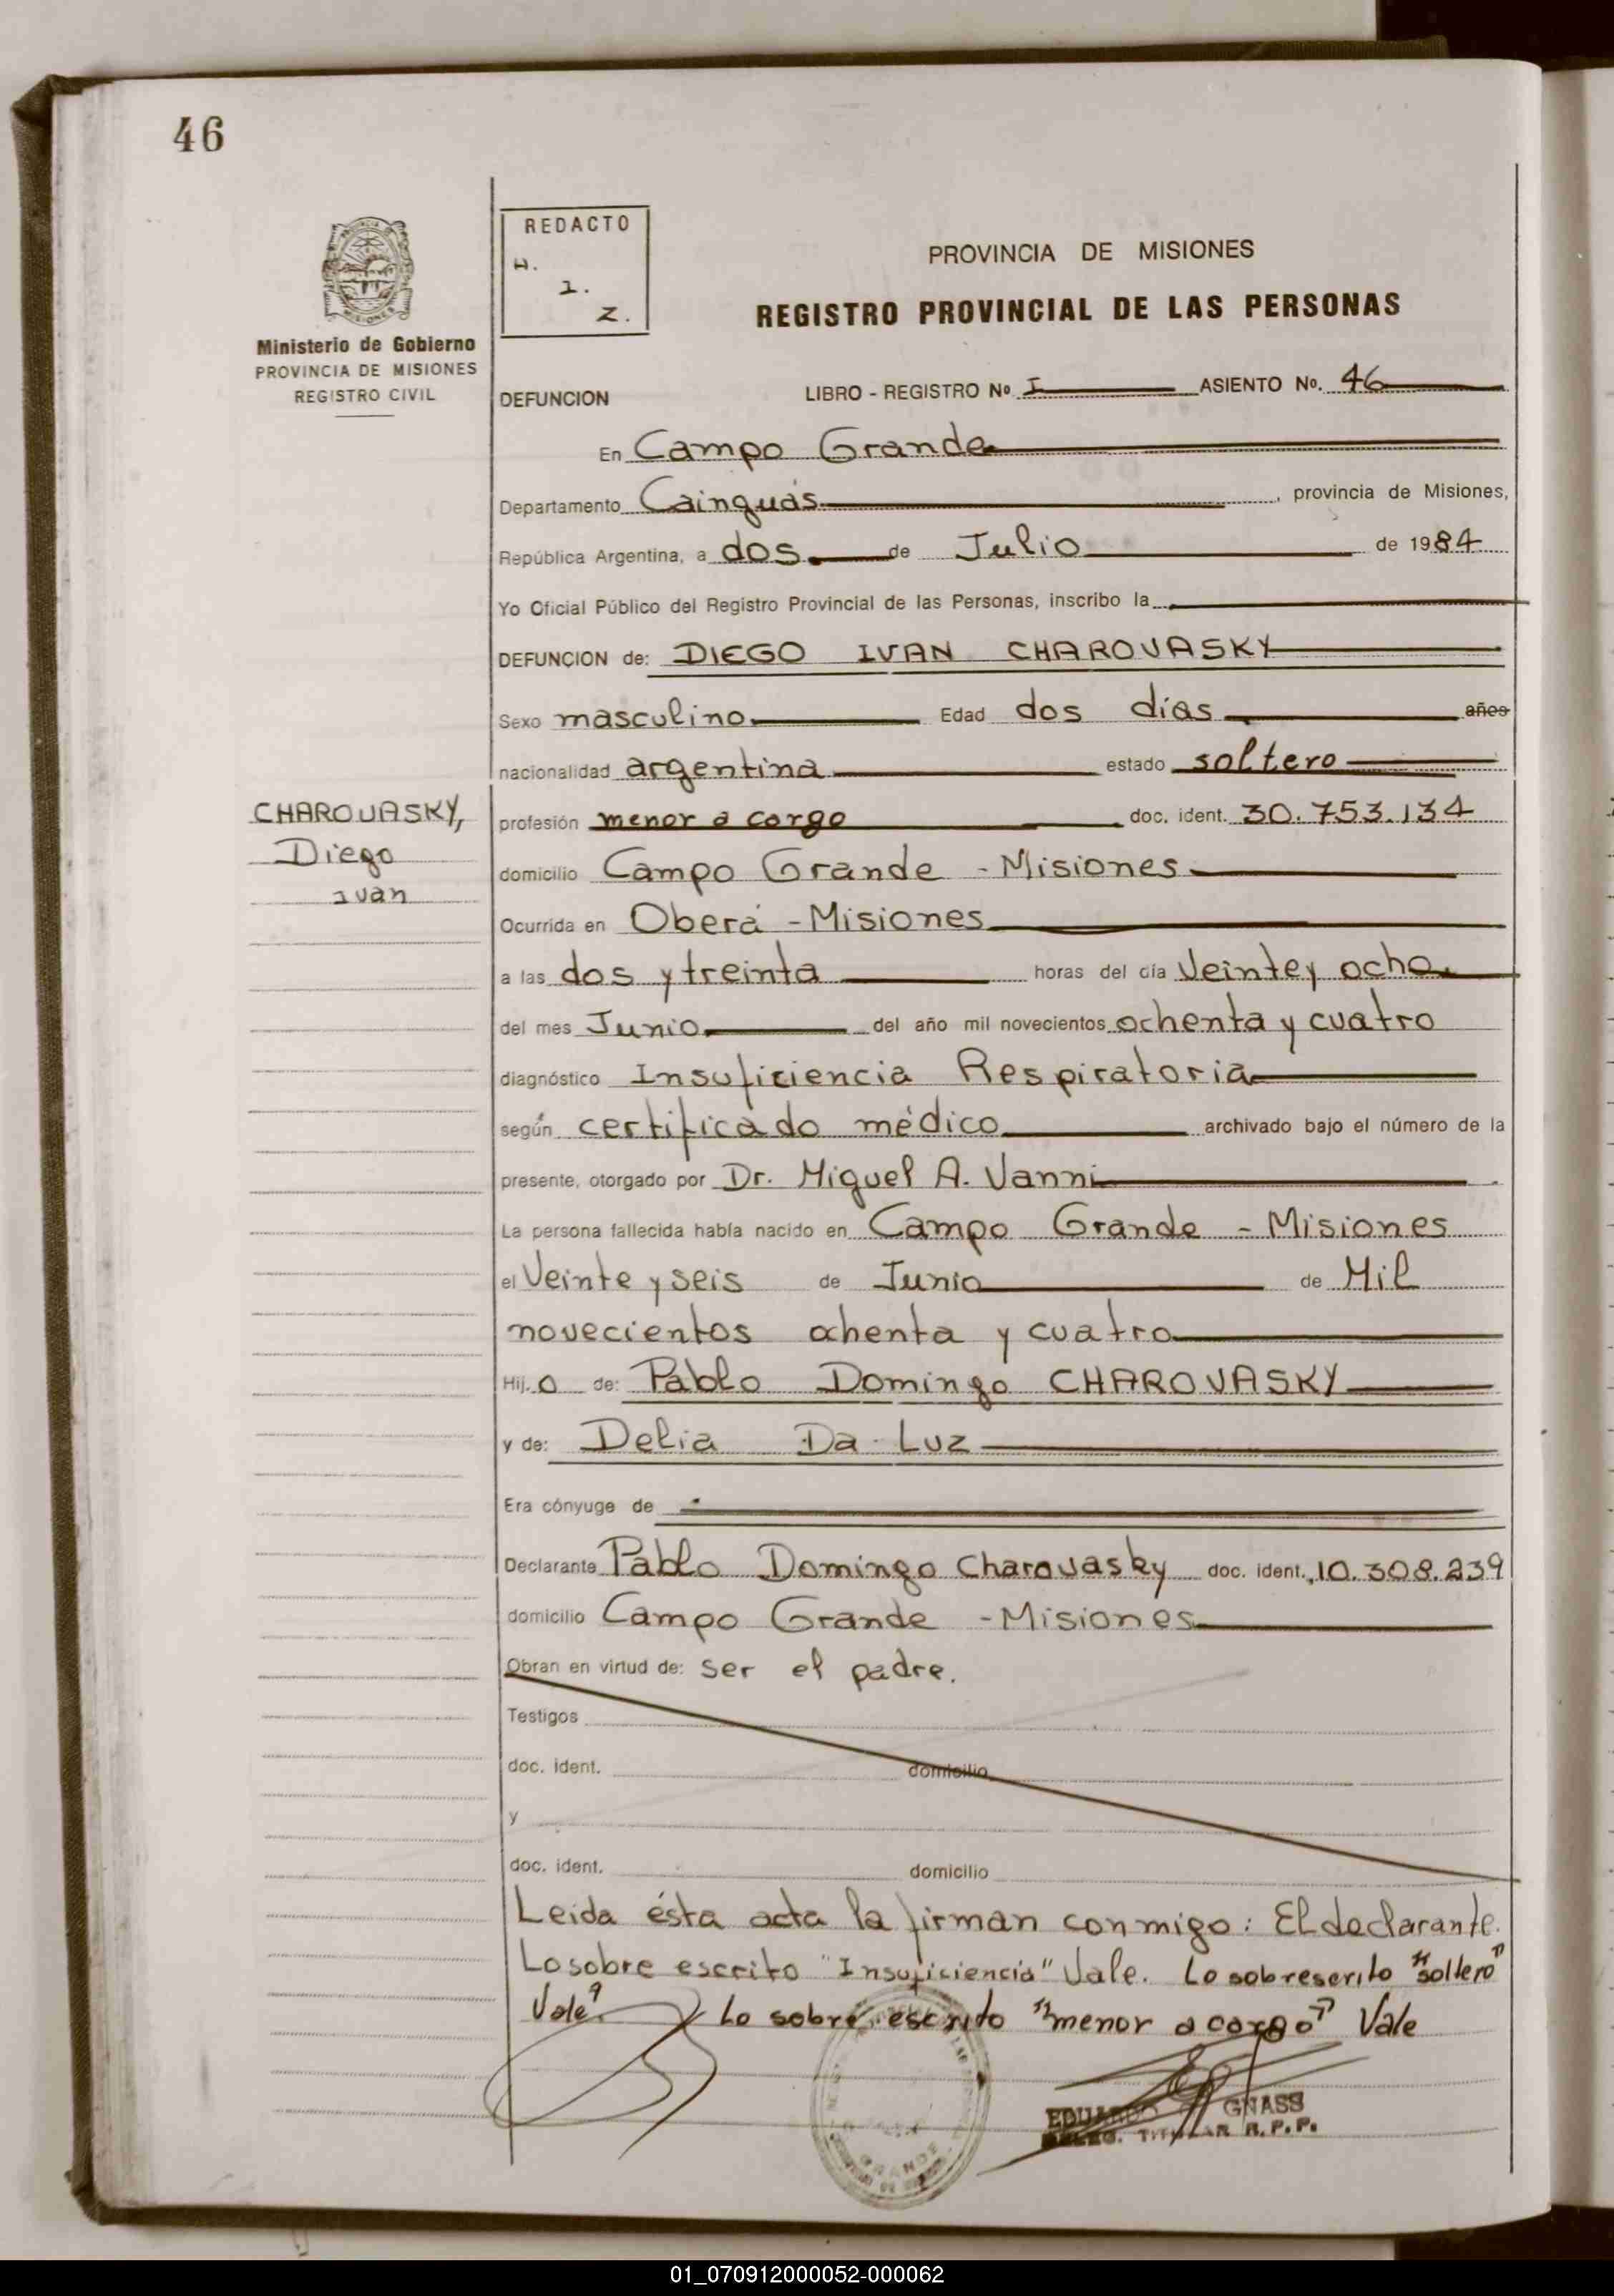 46
REDACTO
H.
I.
Z.
PROVINCIA DE MISIONES
REGISTRO PROVINCIAL DE LAS PERSONAS
Ministerio de Gobierno
PROVINCIA DE MISIONES
REGISTRO CIVIL
DEFUNCION LIBRO - REGISTRO Nº I ASIENTO Nº. 46
En Campo Grande
Departamento Cainguás, provincia de Misiones,
República Argentina, a dos de Julio de 1984
Yo Oficial Público del Registro Provincial de las Personas, inscribo la
DEFUNCION de: DIEGO IVAN CHAROVASKY
Sexo masculino Edad dos días años
nacionalidad argentina estado soltero
CHAROVASKY,
Diego
Ivan
profesión menor a cargo doc. ident. 30.753.134
domicilio Campo Grande - Misiones
Ocurrida en Oberá - Misiones
a las dos y treinta horas del día Veinte y ocho
del mes Junio del año mil novecientos ochenta y cuatro
diagnóstico Insuficiencia Respiratoria
según certificado médico archivado bajo el número de la
presente, otorgado por Dr. Miguel A. Vanni.
La persona fallecida había nacido en Campo Grande - Misiones
el Veinte y seis de Junio de Mil
novecientos ochenta y cuatro
Hij o de: Pablo Domingo CHAROVASKY
y de: Delia Da Luz
Era cónyuge de
Declarante Pablo Domingo Charovasky doc. ident. 10.308.239
domicilio Campo Grande - Misiones
Obran en virtud de: ser el padre.
Testigos
doc. ident. domicilio
y
doc. ident. domicilio
Leida ésta acta la firman conmigo: El declarante.
Lo sobre escrito "Insuficiencia" Vale. Lo sobrescrito "soltero"
Vale. Lo sobre escrito "menor a cargo" Vale
EDUARDO GNASS
DELEG. TITULAR R.P.P.
01_070912000052-000062